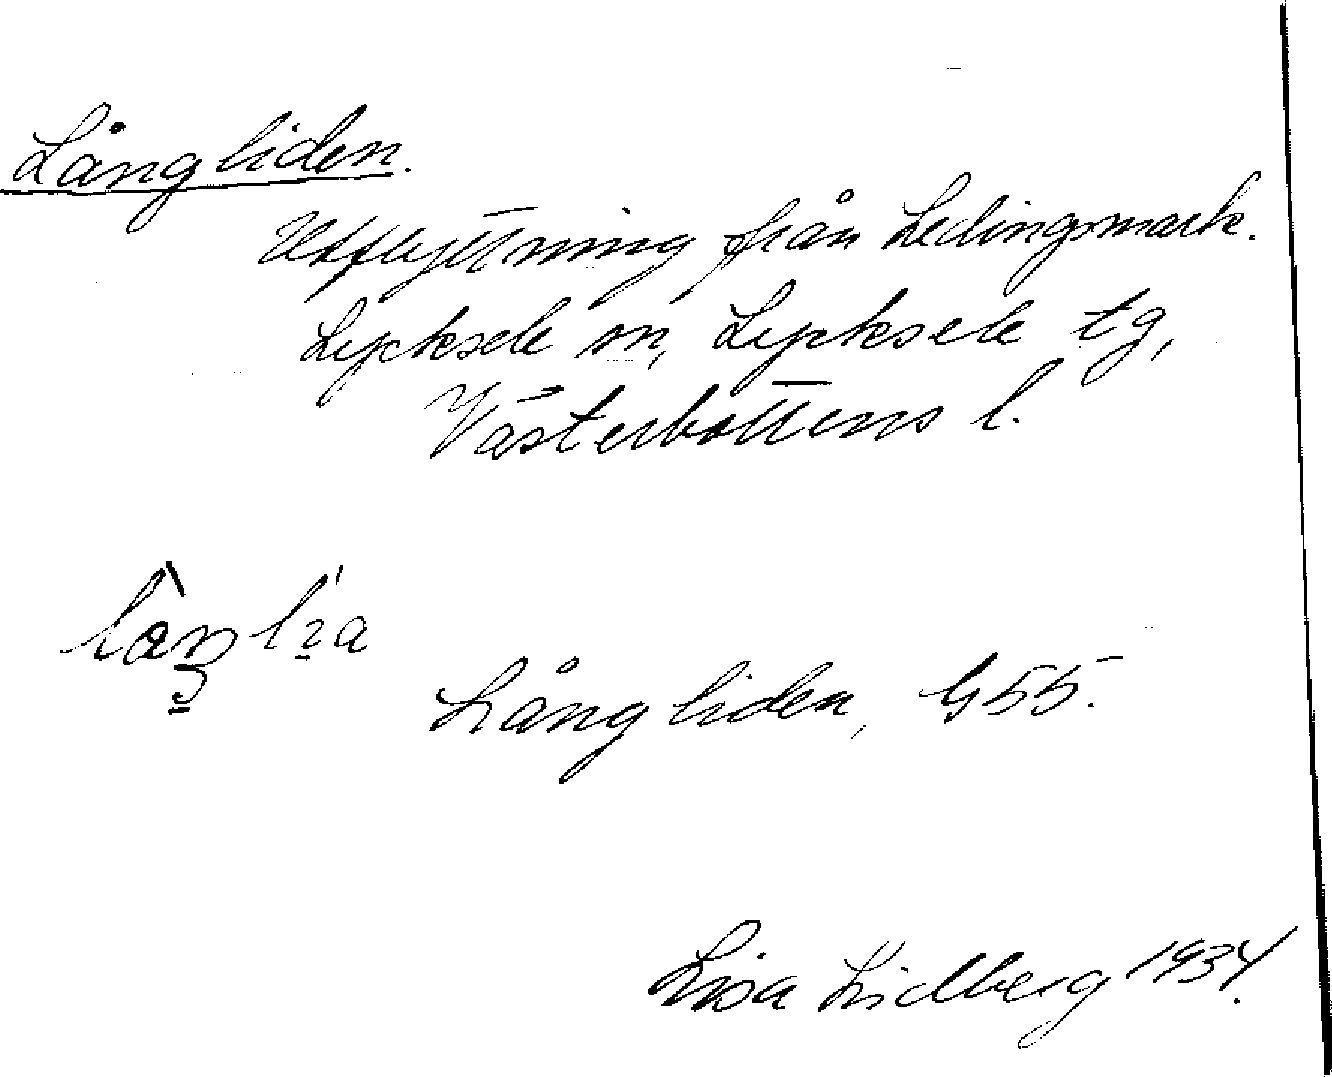 Långliden.
Utflyttning från Ledingsmark.
Lycksele sn, Lycksele tg,
Västerbottens l.
Långliden, G55.
Lisa Lidberg 1934.